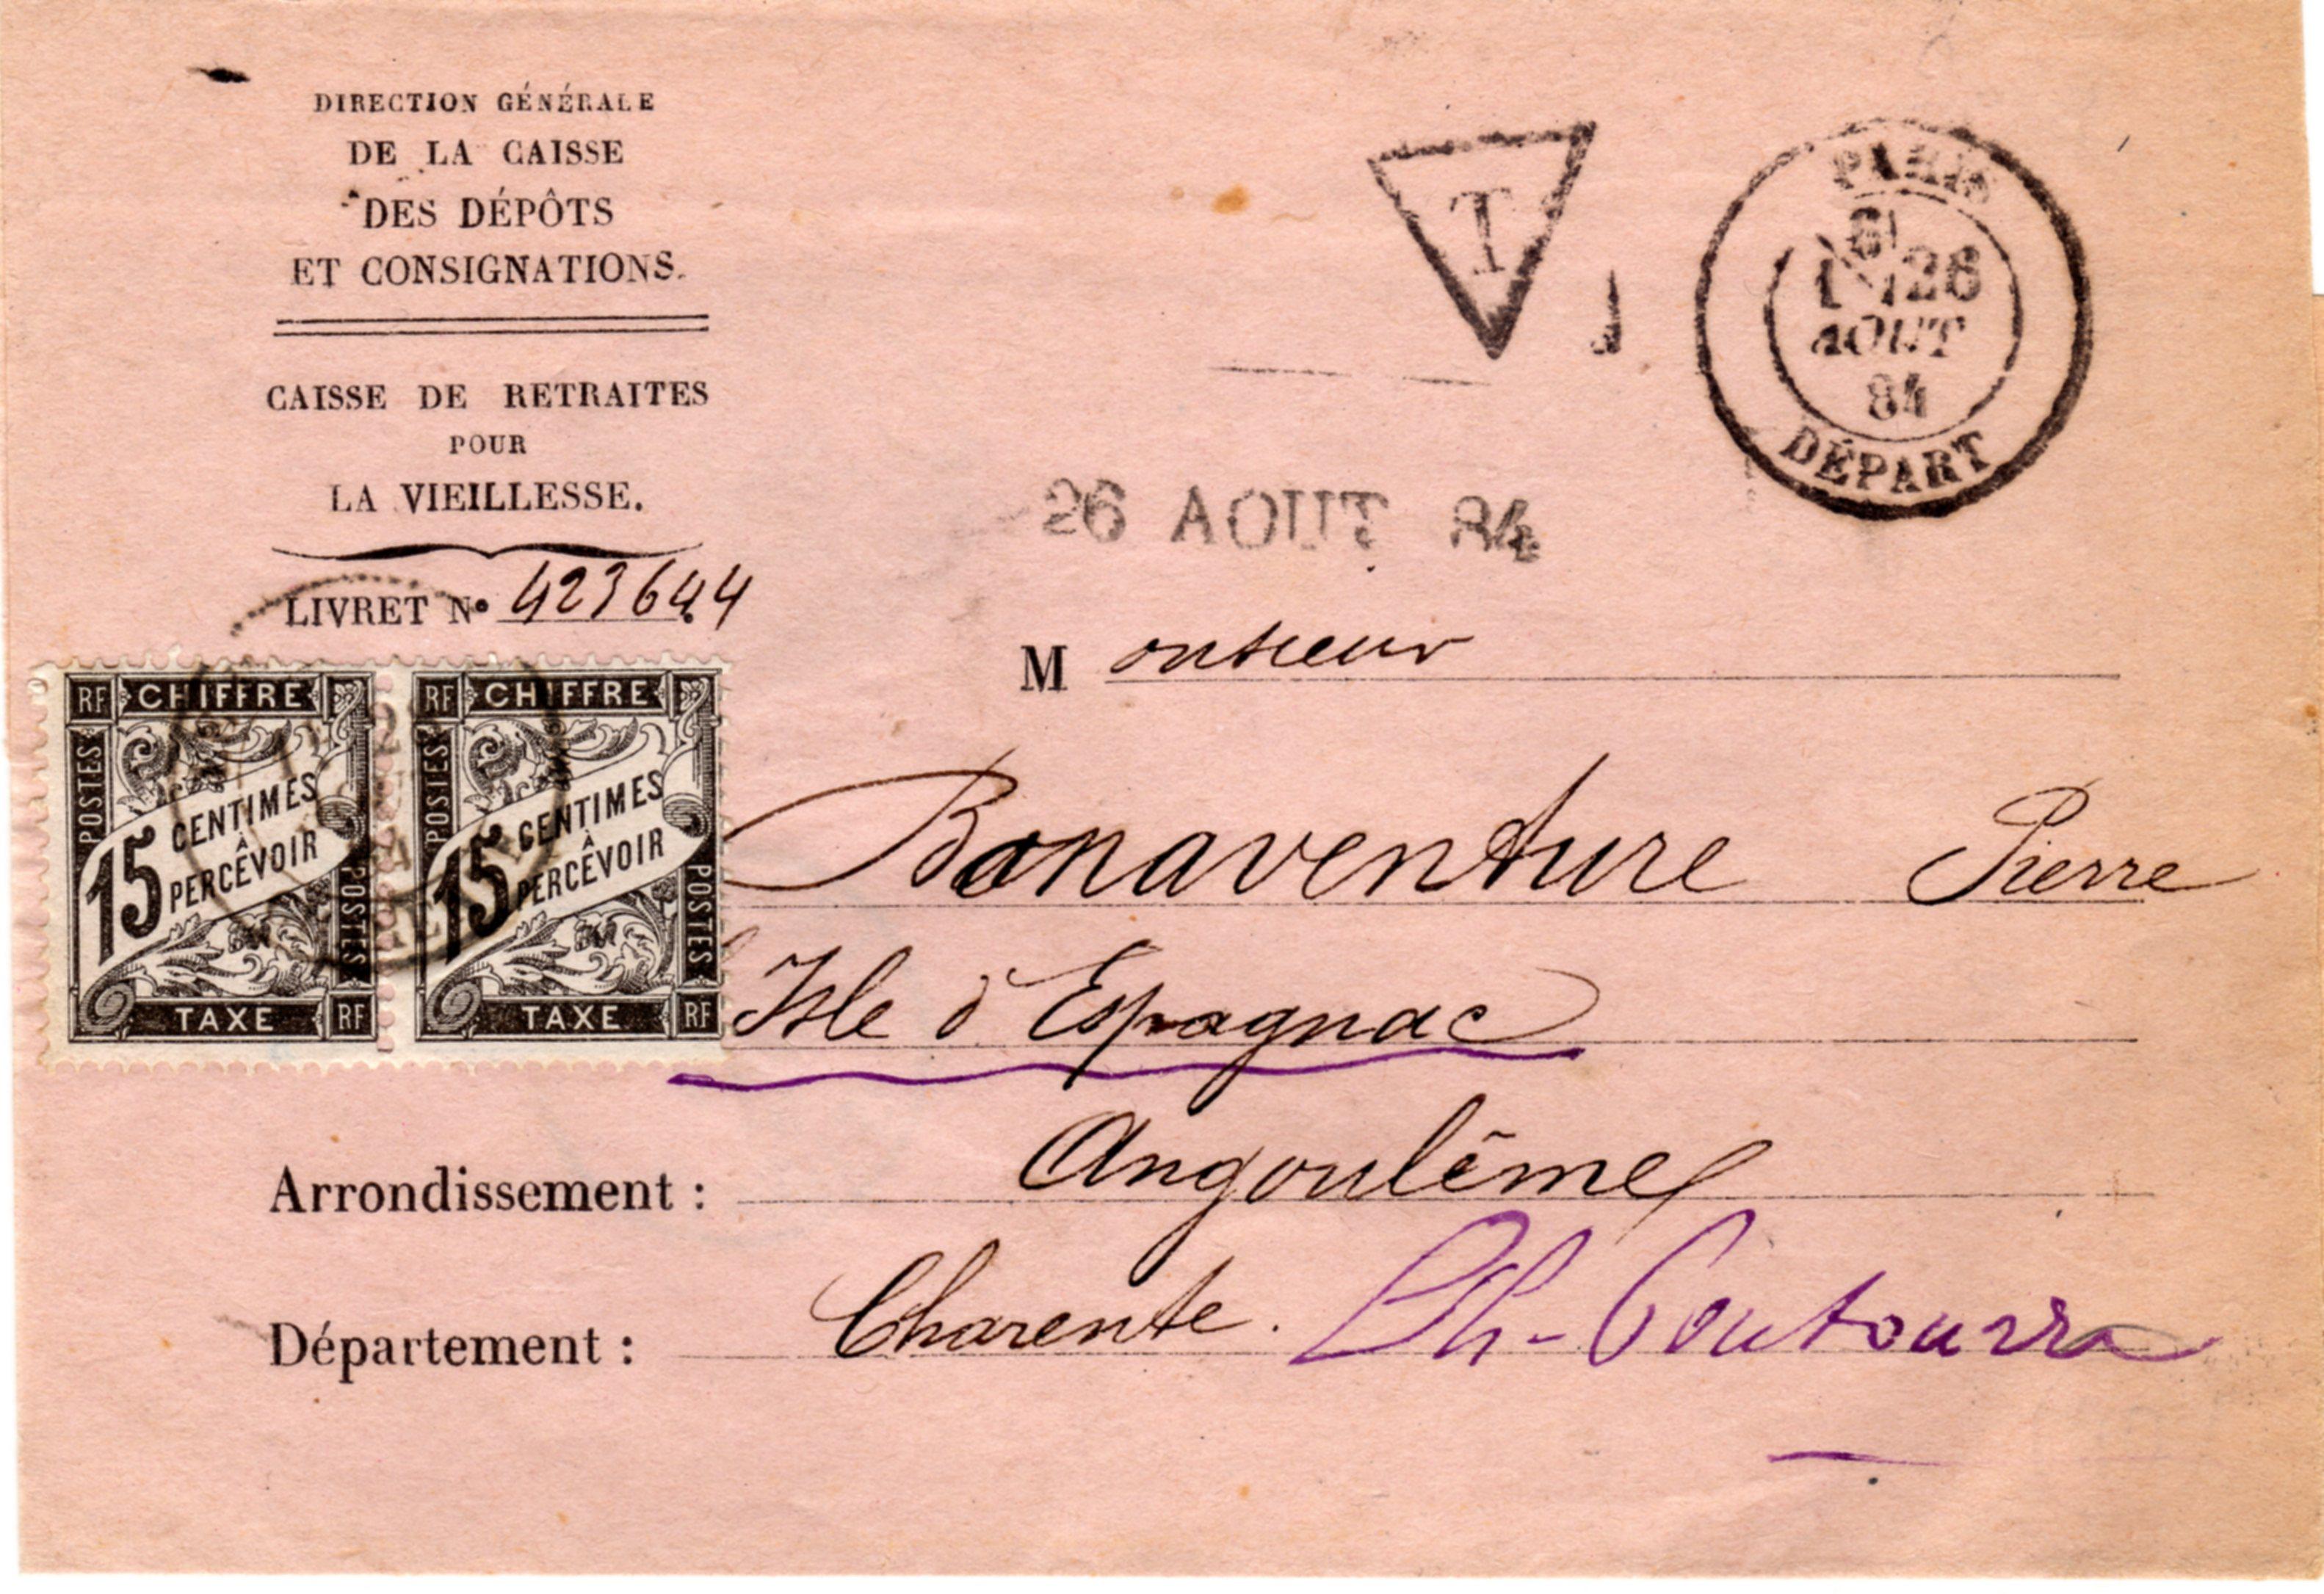 DIRECTION GÉNÉRALE
DE LA CAISSE
DES DÉPÔTS
ET CONSIGNATIONS.
CAISSE DE RETRAITES
POUR
LA VIEILLESSE.
LIVRET N° 423644
T
PARIS
26
AOUT
84
DÉPART
26 AOUT 84
Monsieur
Bonaventure Pierre
l'Isle d'Espagnac
Arrondissement : Angoulême
Département : Charente.
RF CHIFFRE
POSTES
15 CENTIMES
À
PERCEVOIR
POSTES
TAXE RF
RF CHIFFRE
POSTES
15 CENTIMES
À
PERCEVOIR
POSTES
TAXE RF